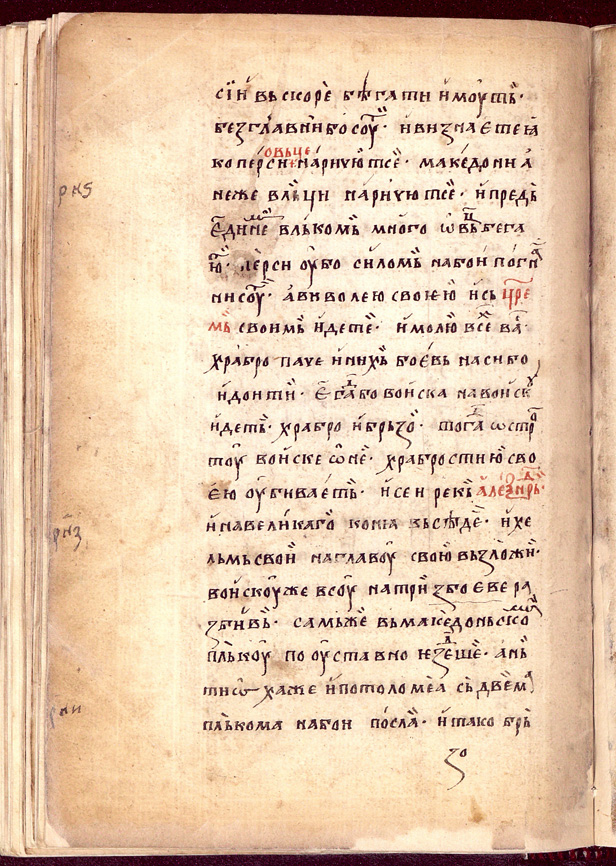 сїи вьскоре бѣгати имоуть·
безглавни бо соуⷮ· и визнаєте ꙗ
овьце
ко перси нариують се· македониꙗ
неже вльци нариують се· и предь
рк҃ѕ
єдинеⷨ влькомь много ѡвьць бега
юⷮ· перси оубо силомь на бои погна
ни соуⷮ· а ви волею своєю и сь цре
мь своимь идете· и молю все ваⷭ
храбро паче инихь боєвь на си бо
и доити· єгⷣа бо воиска на воискꙋ
идеть· храбро и брьзо· тогⷣа ѡ
тоу воиске ѡне· храбростию сво
єю оубиваєть· и сеи рекь алеѯⷣнрь·
и на великаго конꙗ вьсѣде· и хе
рк҃з
льмь свои на главоу свою вьзложи·
воискоу же всоу на три збоєве ра
збивь· самь же вь македоньскоⷨ
пльхоу по оуставно ꙗзⷣеше· ань
тиѡхаже и потоломеа сь двема
рк҃и
пльхома на бои посла· и тако брь
зо